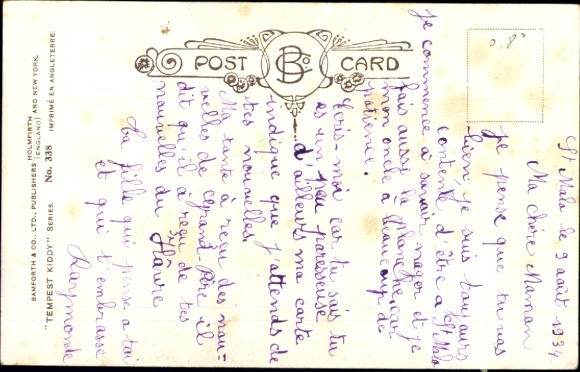 POST CARD
B Co
0.80
St Malo le 9 août 1934
Ma chère Maman
Je pense que tu vas
bien je suis toujours
contente d'être à St Malo
je commence à savoir nager et je
fais aussi la planche, car
mon oncle a beaucoup de
patience.
Écris-moi car tu sais tu
es un peu paresseuse
d'ailleurs ma carte
indique que j'attends de
tes nouvelles.
Ma tante à reçu des nou-
velles de Grand-Père il
dit qu'il à reçu de tes
nouvelles du Hâvre
Ta fille qui pense a toi
et qui t'embrasse
Raymonde
BAMFORTH & CO., LTD., PUBLISHERS HOLMFIRTH (ENGLAND) AND NEW YORK.
"TEMPEST KIDDY" SERIES. No. 338 IMPRIMÉ EN ANGLETERRE.